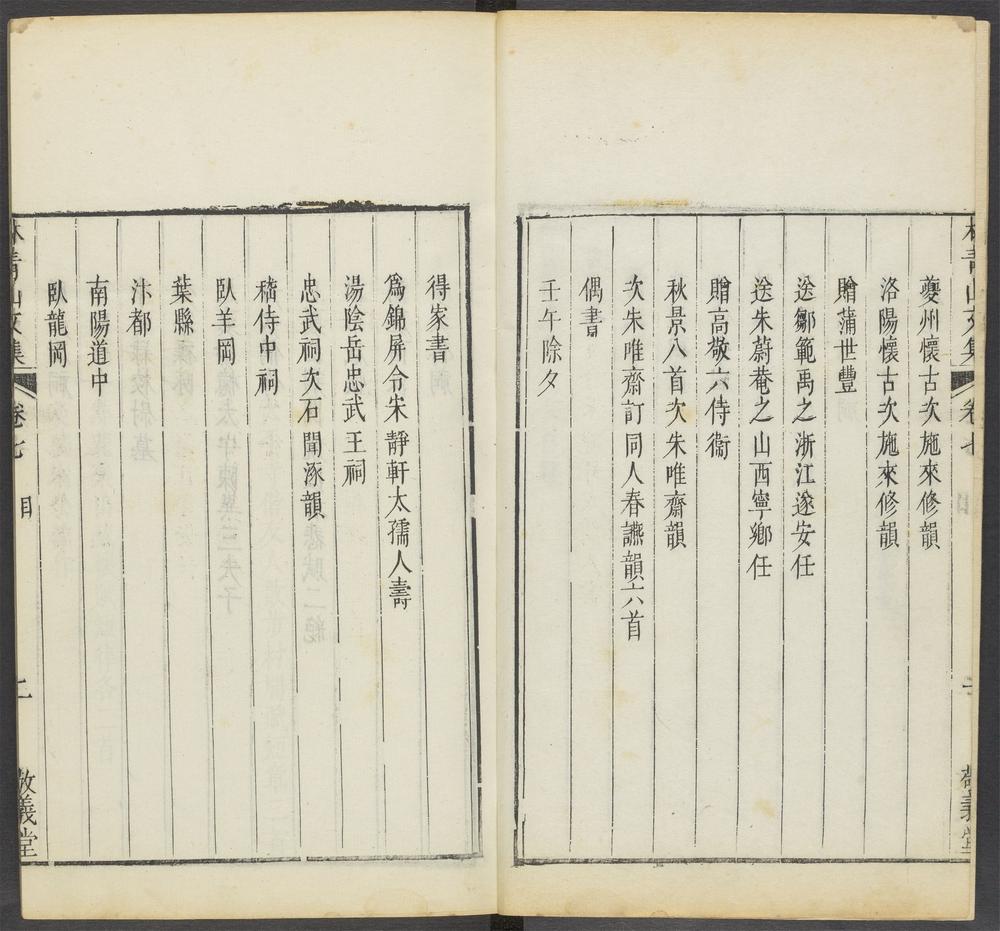 夔州懷古次施來修韻
洛陽懷古次施來修韻
贈蒲世豐
送鄒範禹之浙江遂安任
送朱蔚菴之山西寧鄉任
贈高敬六侍衞
秋景八首次朱唯齋韻
次朱唯齋訂同人春讌韻六首
偶書
壬午除夕
得家書
爲錦屏令宋靜軒太孺人壽
湯陰岳忠武王祠
忠武祠次石聞涿韻
嵇侍中祠
臥羊岡
葉縣
汴都
南陽道中
臥龍岡
林青山文集
卷七
目
二
敦義堂